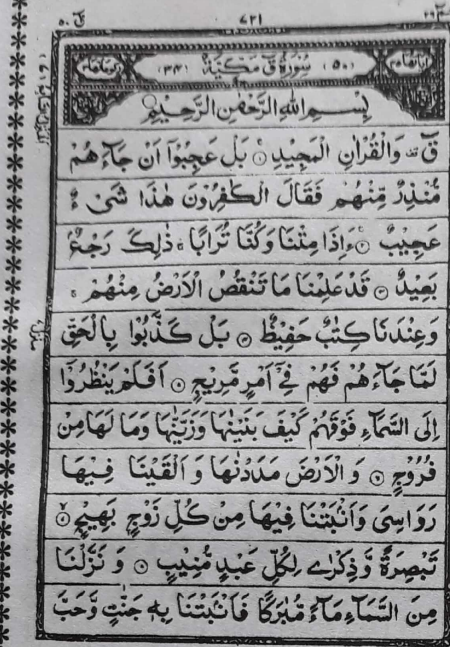 قٓ ٥٠ ٧٢١ حٰمٓ ٢٦
اٰیاتها ٤٥ (٥٠) سُوْرَةُ قٓ مَكِّيَّةٌ (٣٤) ركوعاتها ٣
بِسْمِ اللّٰهِ الرَّحْمٰنِ الرَّحِيْمِ
قٓ ۚ وَالْقُرْاٰنِ الْمَجِيْدِ ۝١ بَلْ عَجِبُوْٓا اَنْ جَآءَهُمْ
مُّنْذِرٌ مِّنْهُمْ فَقَالَ الْكٰفِرُوْنَ هٰذَا شَیْءٌ
عَجِيْبٌ ۝٢ ءَاِذَا مِتْنَا وَكُنَّا تُرَابًا ۚ ذٰلِكَ رَجْعٌۢ
بَعِيْدٌ ۝٣ قَدْ عَلِمْنَا مَا تَنْقُصُ الْاَرْضُ مِنْهُمْ ۚ
وَعِنْدَنَا كِتٰبٌ حَفِيْظٌ ۝٤ بَلْ كَذَّبُوْا بِالْحَقِّ
لَمَّا جَآءَهُمْ فَهُمْ فِيْٓ اَمْرٍ مَّرِيْجٍ ۝٥ اَفَلَمْ يَنْظُرُوْٓا
اِلَى السَّمَآءِ فَوْقَهُمْ كَيْفَ بَنَيْنٰهَا وَزَيَّنّٰهَا وَمَا لَهَا مِنْ
فُرُوْجٍ ۝٦ وَالْاَرْضَ مَدَدْنٰهَا وَاَلْقَيْنَا فِيْهَا
رَوَاسِیَ وَاَنْۢبَتْنَا فِيْهَا مِنْ كُلِّ زَوْجٍۭ بَهِيْجٍ ۝٧
تَبْصِرَةً وَّذِكْرٰى لِكُلِّ عَبْدٍ مُّنِيْبٍ ۝٨ وَنَزَّلْنَا
مِنَ السَّمَآءِ مَآءً مُّبٰرَكًا فَاَنْۢبَتْنَا بِهٖ جَنّٰتٍ وَّحَبَّ